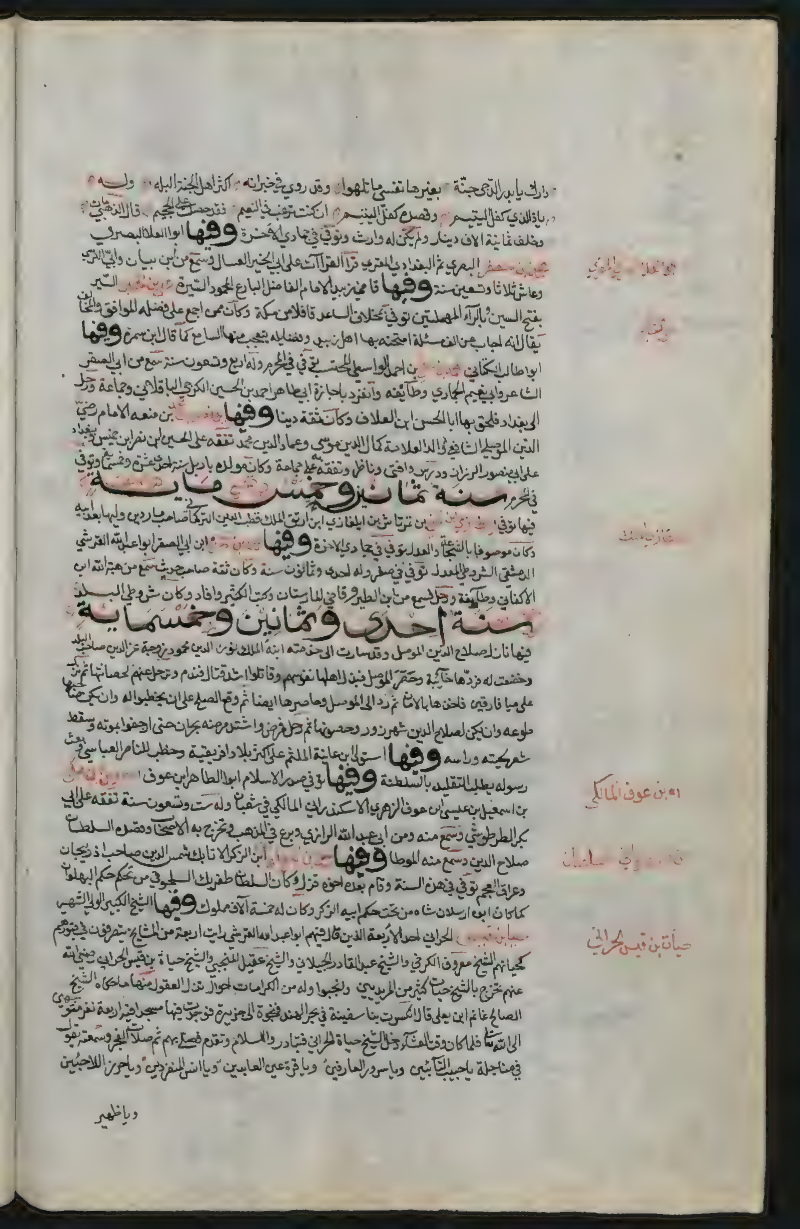 دارك يا بدر الدجى جنة بغيرها نفسي ما تلهوا وقد روي في خبر انه اكثر اهل الجنة البله وله
يا ذا الذي كفل اليتيم وقصده كفل اليتيم ان كنت ترغب في النعيم فقد حصلت على الجحيم قال الذهبي
وخلف ثمانية الاف دينار ولم يكن له وارث وتوفي في جمادي الاخرة وفيها ابو العلا البصروي
البصري ثم البغدادي المقري قرأ القراآت على ابي الخير العسال وسمع من ابن بيان وابي النرسي
وعاش ثلاثا وتسعين سنة وفيها قاضي زبيد الامام الفاضل البارع المجود
بفتح السين والراء المهملتين توفي قافلا من مكة وكان ممن اجمع على فضله الموافق والمخالف
يقال انه اجاب عن الف مسئلة امتحنه بها اهل زبيد وفضايله يتعجب منها السامع كما قال ابن سمرة وفيها
ابو طالب الكتاني بن احمد الواسطي المحتسب توفي في المحرم وله اربع وتسعون سنة سمع من ابي الصقر
الشاعر وابي نعيم الجماري وطايفه وانفرد باجازة ابي طاهر احمد بن الحسين الكرجي الباقلاني وجماعة ورحل
الى بغداد فلحق بها ابا الحسن ابن العلاف وكان ثقة دينا وفيها بن منعه الامام رضي
الدين الموصلي الشافعي والد العلامة كمال الدين موسى وعماد الدين محمد تفقه على الحسين ابن نصر ابن خميس وببغداد
على ابي منصور الرزاز ودرس وافتى وناظر وتفقه به جماعة وكان مولده باربل سنة احدى عشرة وخمسماية وتوفي
في المحرم سنة ثمانين وخمس ماية
فيها توفي بن تمرتاش بن ايلغازي ابن ارتق الملك قطب الدين التركماني صاحب ماردين وليها بعد ابيه
وكان موصوفا بالشجاعة والعدل توفي في جمادي الاخرة وفيها ابن ابي الصقر ابو عبد الله القرشي
الدمشقي الشروطي المعدل توفي في صفر وله احدى وثمانون سنة وكان ثقة صاحب حديث سمع من هبة الله ابن
الاكفاني وطايفة ورحل فسمع من ابن الطبر وقاضي المارستان وكتب الكثير وافاد وكان شروطي البلد
سنة احدى وثمانين وخمسماية
فيها نازل صلاح الدين الموصل وقد سارت الى خدمته ابنة الملك نور الدين محمود زوجة عز الدين صاحب البلد
وخضعت له فردها خايبة وحصر الموصل فبذل اهلها نفوسهم وقاتلوا اشد قتال فندم وترحل عنهم لحصانتها ثم نزل
على ميافارقين فاخذها بالامان ثم رد الى الموصل وحاصرها ايضا ثم وقع الصلح على ان يخطبوا له وان يكون صاحبها
طوعه وان يكون لصلاح الدين شهرزور وحصونها ثم رحل فمرض واشتد مرضه بحران حتى ارجفوا بموته وسقط
شعر لحيته وراسه وفيها استولى ابن غانية الملثم على اكثر بلاد افريقية وخطب للناصر العباسي وبعث
رسوله يطلب التقليد بالسلطنة وفيها توفي صدر الاسلام ابو الطاهر ابن عوف
بن اسمعيل بن عيسى ابن عوف الزهري الاسكندراني المالكي في شعبان وله ست وتسعون سنة تفقه على ابي
بكر الطرطوشي وسمع منه ومن ابي عبد الله الرازي وبرع في المذهب وتخرج به الاصحاب وقصده السلطان
صلاح الدين وسمع منه الموطا وفيها ابن الزكر الاتابك شمس الدين صاحب اذربيجان
وعراق العجم توفي في هذه السنة وقام بعده اخوه قزل وكان السلطان طغرلبك السلجوقي من تحت حكم البهلوان
كما كان ابوه ارسلان شاه من تحت حكم ابيه الزكر وكان له خمسة الاف مملوك وفيها الشيخ الكبير الولي الشهير
الحراني احد الاربعة الذين قال فيهم ابو عبد الله القرشي رايت اربعة من المشايخ يتصرفون في قبورهم
كحياتهم الشيخ معروف الكرخي والشيخ عبد القادر الجيلاني والشيخ عقيل المنبجي والشيخ حياة بن قيس الحراني رضي الله
عنهم تخرج بالشيخ حياة كثير من المريدين وانجبوا وله من الكرامات احوال تذهل العقول منها ما حكاه الشيخ
الصالح غانم ابن يعلى قال انكسرت بنا سفينة في بحر الهند فنجوت الى جزيرة فوجدت فيها مسجدا فيه اربعة نفر متوجهين
الى الله تعالى فلما كان وقت العشا دخل الشيخ حياة الحراني فتبادروا للسلام وتقدم فصلى بهم ثم صلاة الفجر وسمعته يقول
في مناجاته يا حبيب التائبين ويا سرور العارفين ويا قرة عين العابدين ويا انس المنفردين ويا حرز اللاجين
ويا ظهير
ابن عوف المالكي
حيات بن قيس الحراني